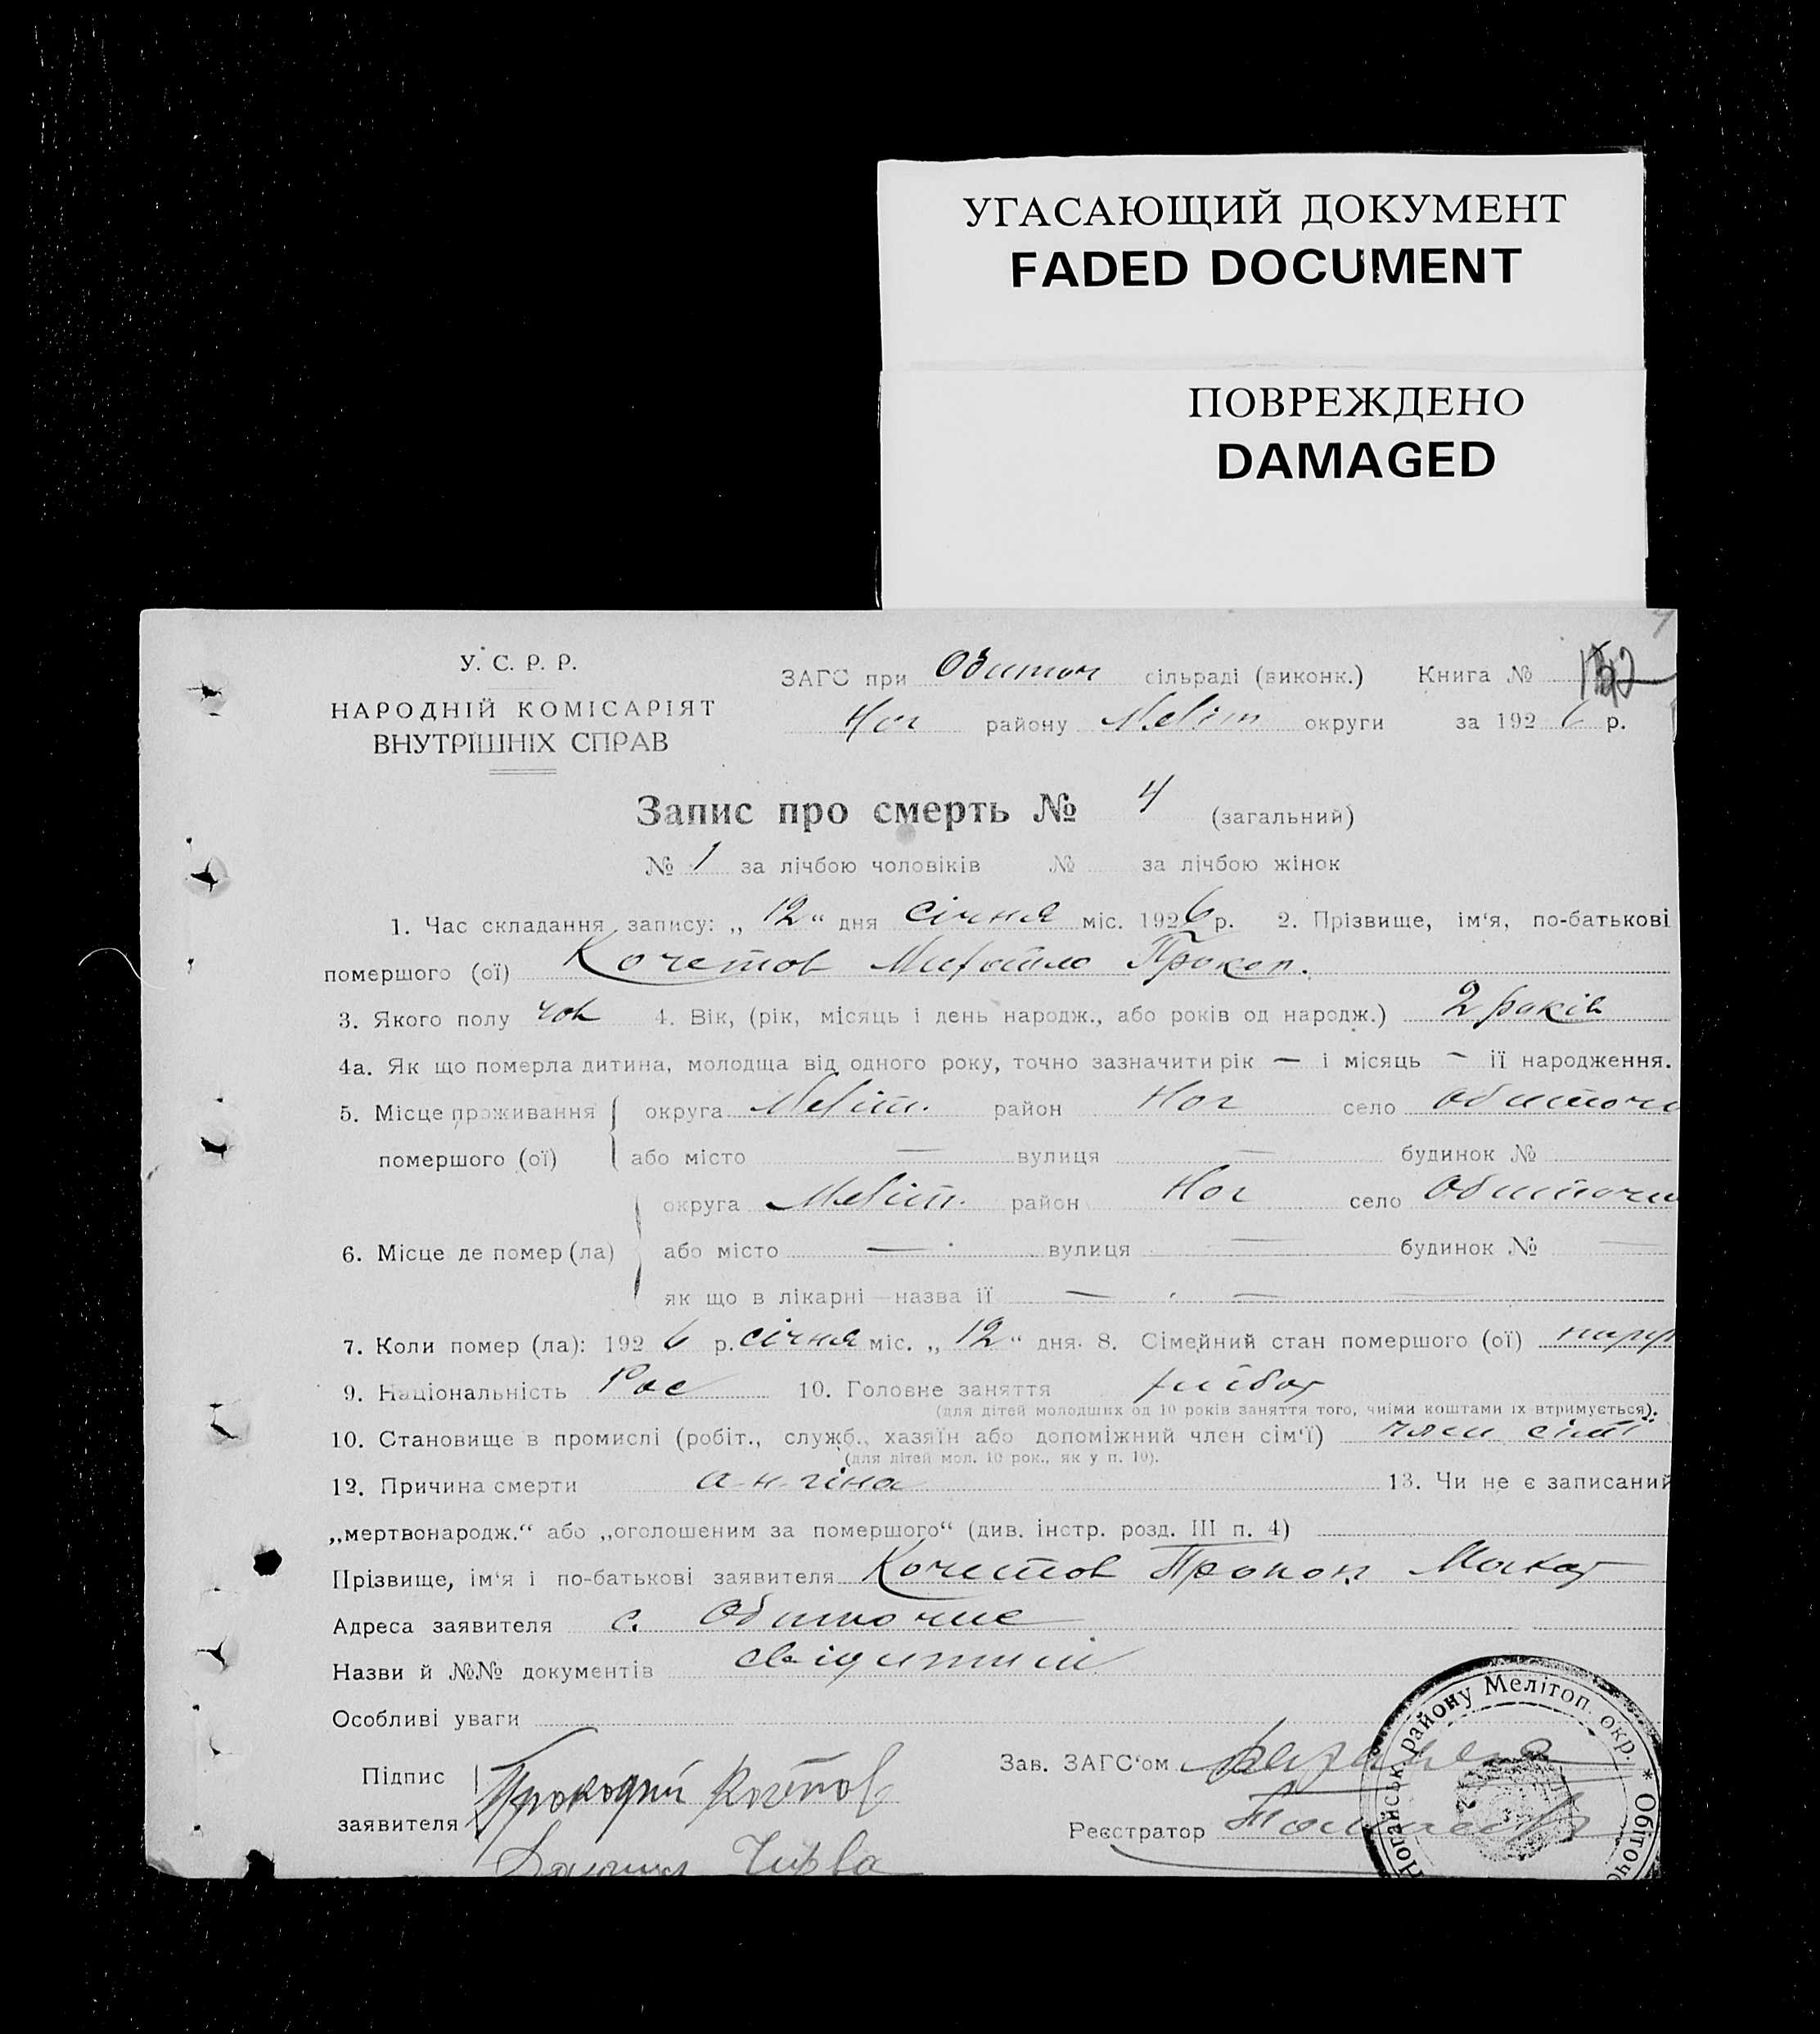 УГАСАЮЩИЙ ДОКУМЕНТ
FADED DOCUMENT
ПОВРЕЖДЕНО
DAMAGED
У. С. Р. Р.
НАРОДНІЙ КОМІСАРІЯТ
ВНУТРІШНІХ СПРАВ
ЗАГС при Обиточ сільраді (виконк.) Книга №
Ног району Меліт округи за 1926 р.
Запис про смерть № 4 (загальний)
№ 1 за лічбою чоловіків № за лічбою жінок
1. Час складання запису: „ 12 “ дня січня міс. 1926 р. 2. Прізвище, ім‘я, по-батькові
помершого (ої) Кочетов Михайло Прокоп.
3. Якого полу чол 4. Вік, (рік, місяць і день народж., або років од народж.) 2 років
4а. Як що померла дитина, молодща від одного року, точно зазначити рік — і місяць — її народження.
5. Місце проживання округа Меліт. район Ног село Обиточн
помершого (ої) або місто — вулиця — будинок №
округа Меліт. район Ног село Обиточн
6. Місце де помер (ла) або місто — вулиця — будинок № —
як що в лікарні—назва її — —
7. Коли помер (ла): 1926 р. січня міс. „ 12 “ дня. 8. Сімейний стан помершого (ої)
9. Національність Рос 10. Головне заняття хлібор
(для дітей молодших од 10 років заняття того, чиїми коштами їх втримується).
10. Становище в промислі (робіт., служб., хазяїн або допоміжний член сім‘ї) член сімї
(для дітей мол. 10 рок., як у п. 10).
12. Причина смерти ангіна 13. Чи не є записаний
„мертвонародж.“ або „оголошеним за помершого“ (див. інстр. розд. III п. 4)
Прізвище, ім‘я і по-батькові заявителя Кочетов Прокоп Макар
Адреса заявителя с. Обиточне
Назви й №№ документів
Особливі уваги
Підпис
заявителя
Зав. ЗАГС‘ом
Реєстратор
Ногайськ. району Мелітоп. окр. * Обіточ
Чирва